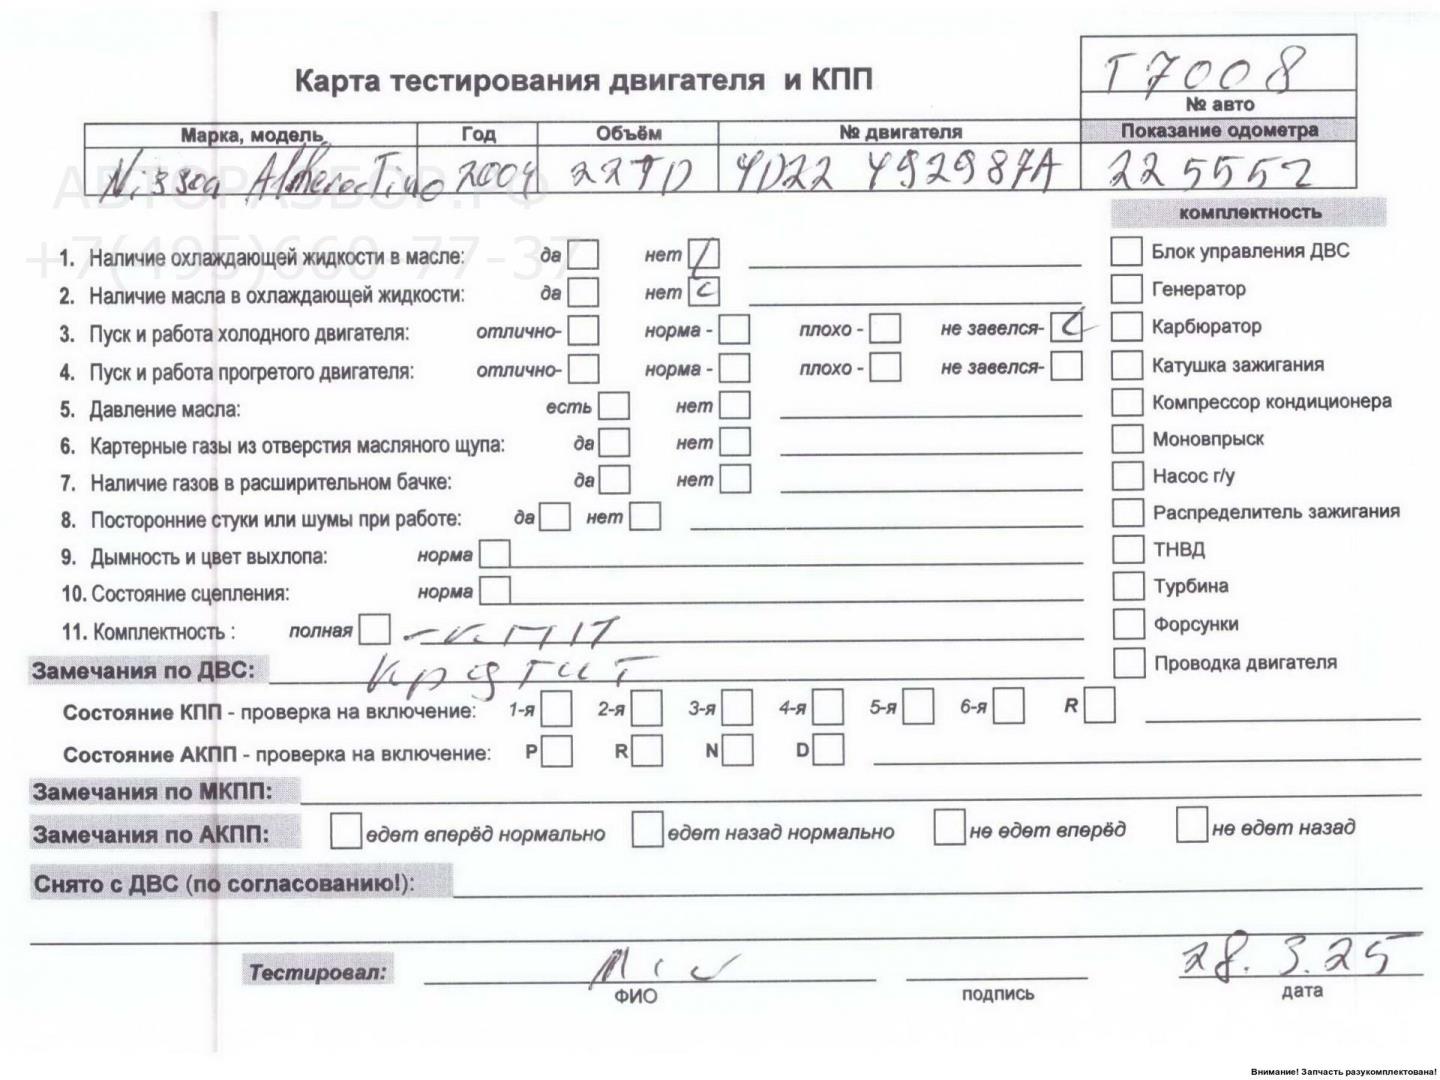 Карта тестирования двигателя и КПП
T7008
№ авто
Марка, модель Год Объём № двигателя Показание одометра
Nissan Almera Tino 2004 22TD YD22 492987A 225552
АВТОРАЗБОР.РФ
+7(495)660-77-37
комплектность
1. Наличие охлаждающей жидкости в масле: да нет Блок управления ДВС
2. Наличие масла в охлаждающей жидкости: да нет Генератор
3. Пуск и работа холодного двигателя: отлично- норма - плохо - не завелся- Карбюратор
4. Пуск и работа прогретого двигателя: отлично- норма - плохо - не завелся- Катушка зажигания
5. Давление масла: есть нет Компрессор кондиционера
6. Картерные газы из отверстия масляного щупа: да нет Моновпрыск
7. Наличие газов в расширительном бачке: да нет Насос г/у
8. Посторонние стуки или шумы при работе: да нет Распределитель зажигания
9. Дымность и цвет выхлопа: норма ТНВД
10. Состояние сцепления: норма Турбина
11. Комплектность : полная - КПП Форсунки
Замечания по ДВС: крутит Проводка двигателя
Состояние КПП - проверка на включение: 1-я 2-я 3-я 4-я 5-я 6-я R
Состояние АКПП - проверка на включение: P R N D
Замечания по МКПП:
Замечания по АКПП: едет вперёд нормально едет назад нормально не едет вперёд не едет назад
Снято с ДВС (по согласованию!):
Тестировал: 28.3.25
ФИО подпись дата
Внимание! Запчасть разукомплектована!